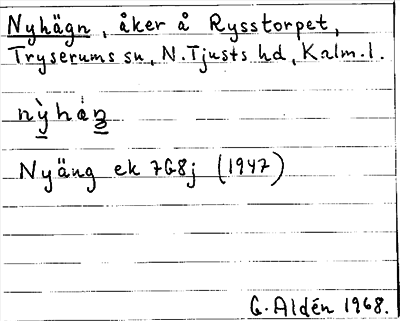 Nyhägn, åker å Rysstorpet,
Tryserums sn, N. Tjusts hd, Kalm. l.
Nyäng ek 7G8j (1947)
G. Aldén 1968.